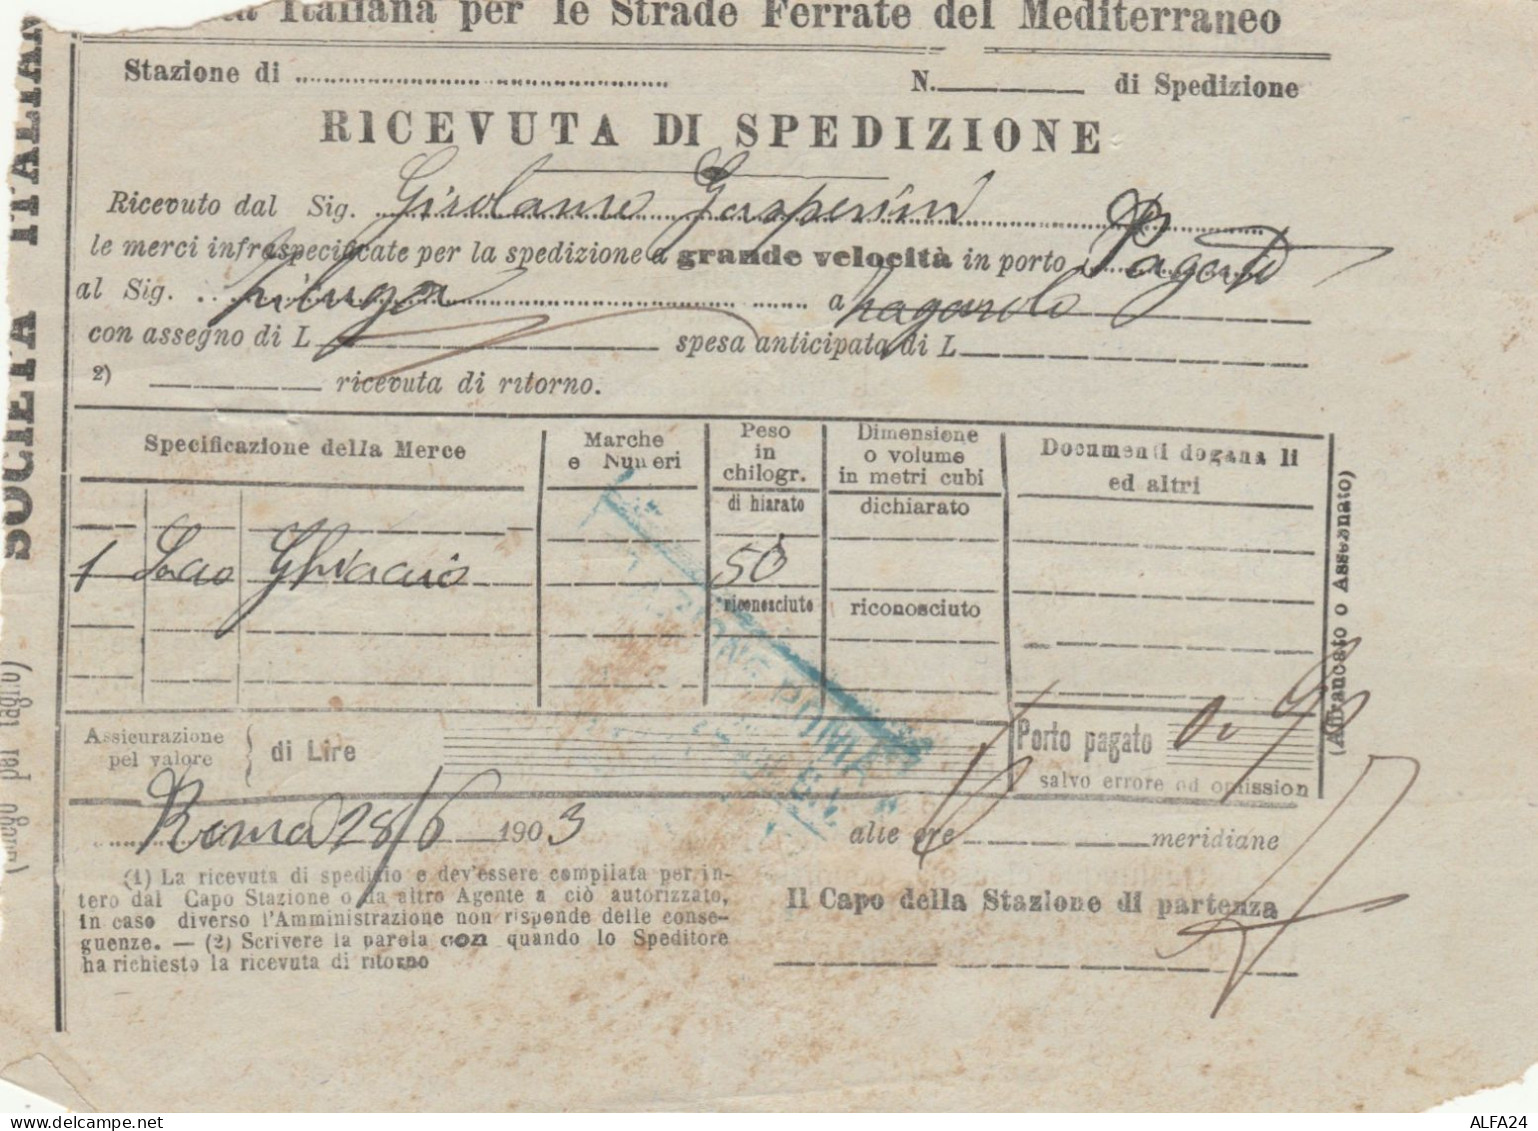 Italiana per le Strade Ferrate del Mediterraneo
Stazione di
N. di Spedizione
RICEVUTA DI SPEDIZIONE
Ricevuto dal Sig. Girolamo Gasperini
le merci infraspecificate per la spedizione a grande velocità in porto Pagato
al Sig. a
con assegno di L spesa anticipata di L
2) ricevuta di ritorno.
Specificazione della Merce
Marche e Numeri
Peso in chilogr.
Dimensione o volume in metri cubi
Documenti doganali ed altri
dichiarato
dichiarato
1 Sacco Ghiaccio 50
riconosciuto
riconosciuto
Assicurazione pel valore
di Lire
Porto pagato
salvo errore od omission
Roma 28/6 1903
alle ore meridiane
(1) La ricevuta di spedizio e dev'essere compilata per in-
tero dal Capo Stazione o da altro Agente a ciò autorizzato,
in caso diverso l'Amministrazione non risponde delle conse-
guenze. — (2) Scrivere la parola con quando lo Speditore
ha richiesto la ricevuta di ritorno
Il Capo della Stazione di partenza
SOCIETÀ ITALIANA
(Affrancato o Assegnato)
STAZIONE ROMA
ALFA24